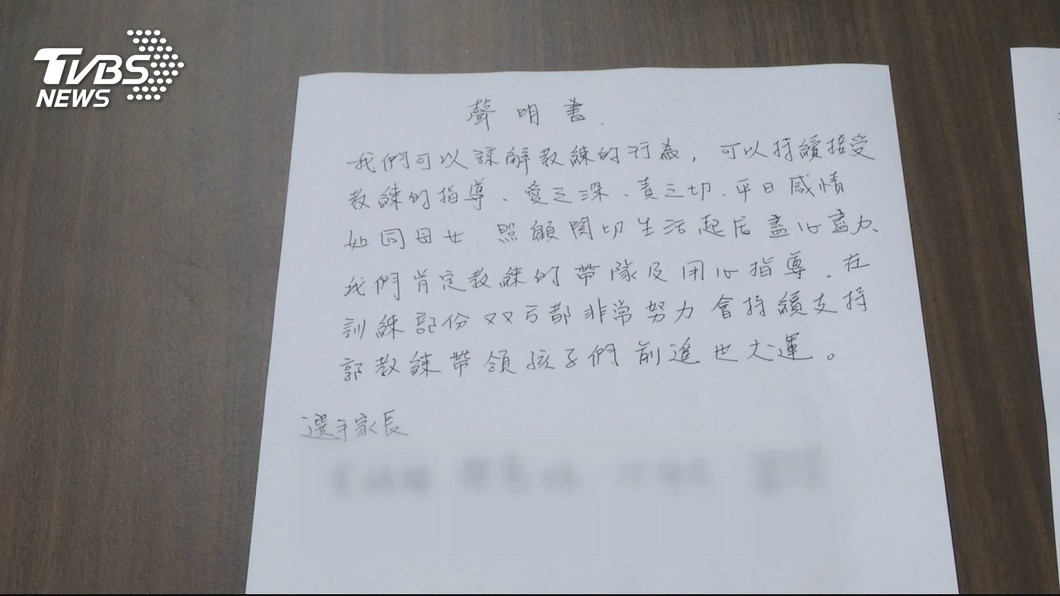 TVBS
NEWS
聲明書.
我們可以諒解教練的行為，可以持續接受
教練的指導、愛之深、責之切、平日感情
如同母女、照顧関切生活起居盡心盡力、
我們肯定教練的帶隊及用心指導。在
訓練部份双方都非常努力會持續支持
郭教練帶領孩子們前進世大運。
選手家長